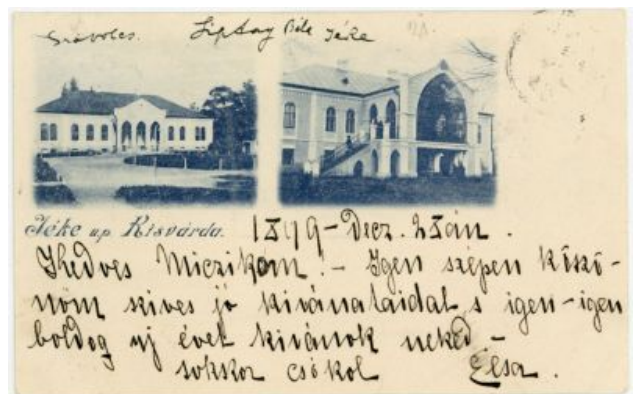 Szabolcs. Liptay Béla Jéke
Jéke u.p. Kisvárda.
1899 - Decz. 28án.
Kedves Miczikém! - Igen szépen köszö-
nöm szives jó kivánataidat s igen-igen
boldog uj évet kivánok neked -
sokszor csókol Elsa.